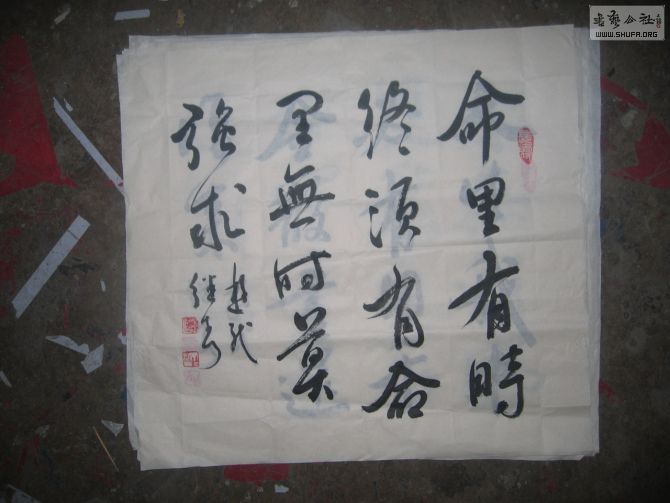 命里有時
終須有命
里無時莫
強求
书艺公社
WWW.SHUFA.ORG